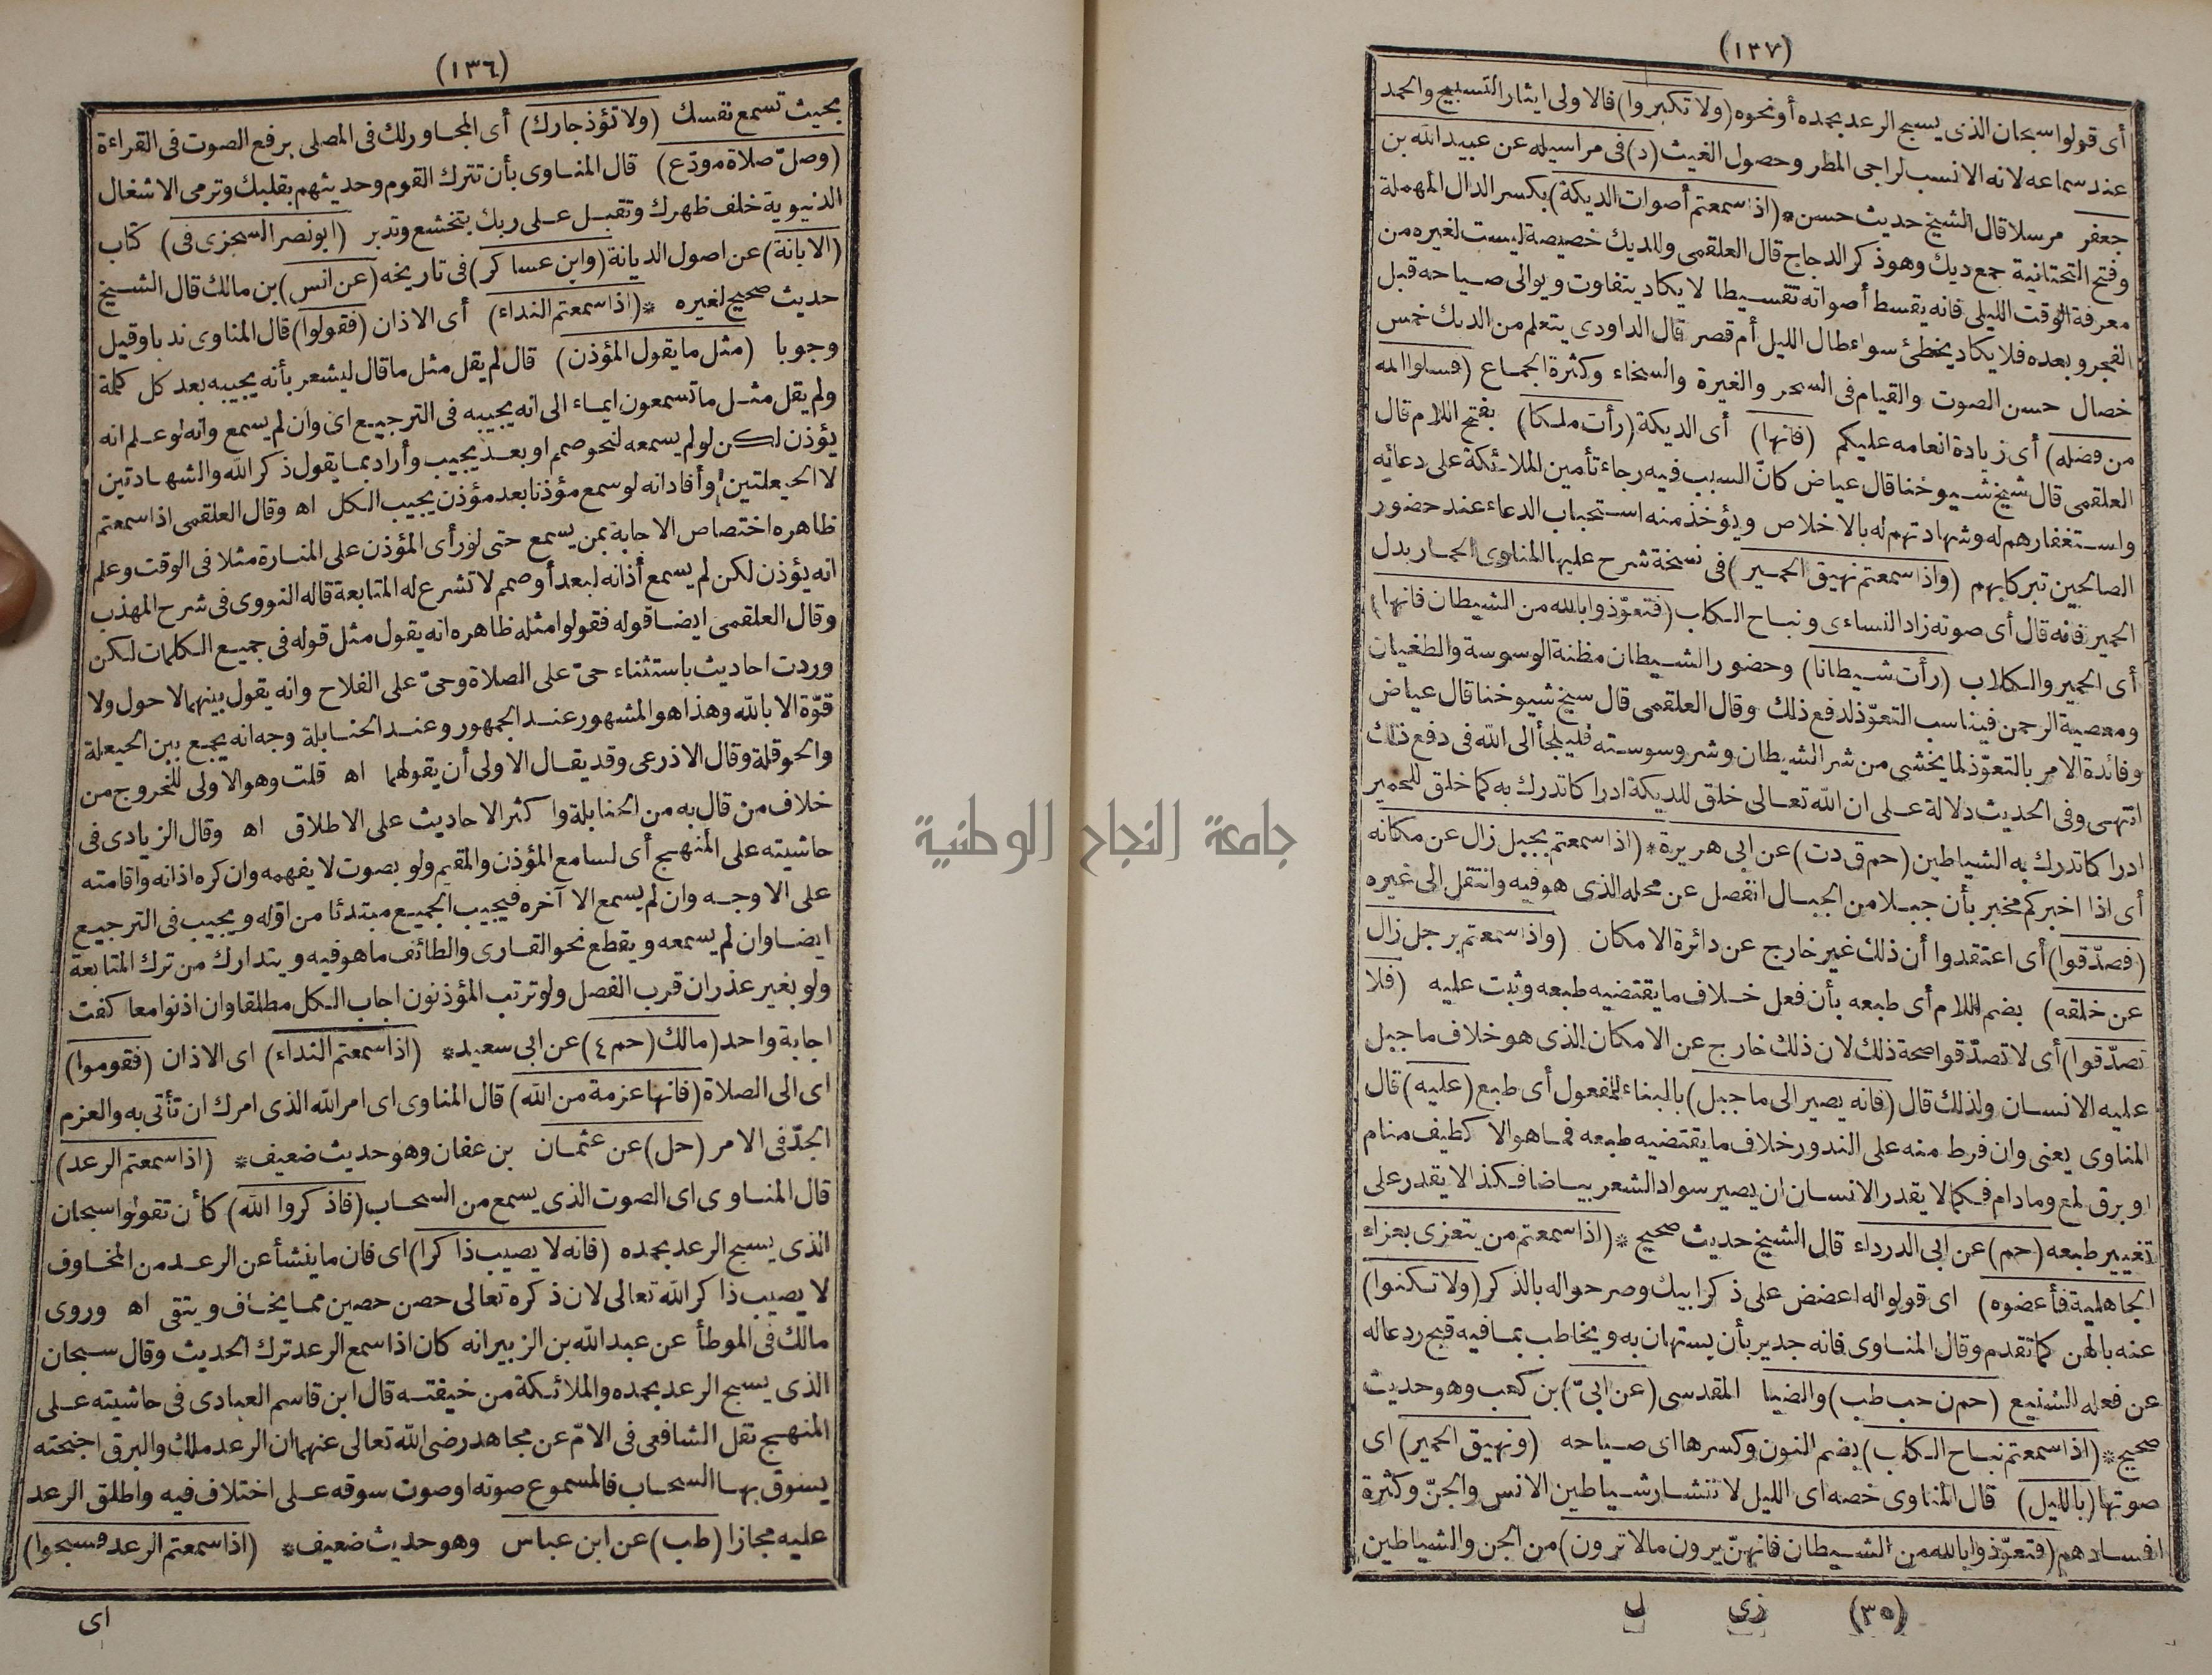 (١٣٦)
بحيث تسمع نفسك (ولا تؤذ جارك) أى المجاور لك فى المصلى برفع الصوت فى القراءة
(وصلّ صلاة مودّع) قال المناوى بأن تترك القوم وحديثهم بقلبك وترمى الاشغال
الدنيوية خلف ظهرك وتقبل على ربك بتخشع وتدبر (ابونصر السجزى فى) كتاب
(الابانة) عن اصول الديانة (وابن عساكر) فى تاريخه (عن انس) بن مالك قال الشيخ
حديث صحيح لغيره * (اذا سمعتم النداء) أى الاذان (فقولوا) قال المناوى ندبا وقيل
وجوبا (مثل ما يقول المؤذن) قال لم يقل مثل ما قال ليشعر بأنه يجيبه بعد كل كلمة
ولم يقل مثل ما تسمعون ايماء الى انه يجيبه فى الترجيع اى وان لم يسمع وانه لو علم انه
يؤذن لكن لو لم يسمعه لنحو صمم او بعد يجيب وأراد بما يقول ذكر الله والشهادتين
لا الحيعلتين وأفاد انه لو سمع مؤذنا بعد مؤذن يجيب الكل اه وقال العلقمى اذا سمعتم
ظاهره اختصاص الاجابة بمن يسمع حتى لو رأى المؤذن على المنارة مثلا فى الوقت وعلم
انه يؤذن لكن لم يسمع أذانه لبعد أو صمم لا تشرع له المتابعة قاله النووى فى شرح المهذب
وقال العلقمى ايضا قوله فقولوا مثله ظاهره انه يقول مثل قوله فى جميع الكلمات لكن
وردت احاديث باستثناء حىّ على الصلاة وحىّ على الفلاح وانه يقول بينهما لا حول ولا
قوّة الا بالله وهذا هو المشهور عند الجمهور وعند الحنابلة وجه انه يجمع بين الحيعلة
والحوقلة وقال الاذرعى وقد يقال الاولى أن يقولهما اه قلت وهو الاولى للخروج من
خلاف من قال به من الحنابلة واكثر الاحاديث على الاطلاق اه وقال الزيادى فى
حاشيته على المنهج أى لسامع المؤذن والمقيم ولو بصوت لا يفهمه وان كره اذانه واقامته
على الاوجه وان لم يسمع الا آخره فيجيب الجميع مبتدئا من اوّله ويجيب فى الترجيع
ايضا وان لم يسمعه ويقطع نحو القارى والطائف ما هو فيه ويتدارك من ترك المتابعة
ولو بغير عذر ان قرب الفصل ولو ترتب المؤذنون اجاب الكل مطلقا وان اذنوا معا كفت
اجابة واحد (مالك (حم ٤) عن ابى سعيد * (اذا سمعتم النداء) اى الاذان (فقوموا)
اى الى الصلاة (فانها عزمة من الله) قال المناوى اى امر الله الذى امرك ان تأتى به والعزم
الجدّ فى الامر (حل) عن عثمان بن عفان وهو حديث ضعيف * (اذا سمعتم الرعد)
قال المناوى اى الصوت الذى يسمع من السحاب (فاذكروا الله) كأن تقولوا سبحان
الذى يسبح الرعد بحمده (فانه لا يصيب ذاكرا) اى فان ما ينشأ عن الرعد من المخاوف
لا يصيب ذاكر الله تعالى لان ذكره تعالى حصن حصين مما يخاف ويتقى اه وروى
مالك فى الموطأ عن عبد الله بن الزبير انه كان اذا سمع الرعد ترك الحديث وقال سبحان
الذى يسبح الرعد بحمده والملائكة من خيفته قال ابن قاسم العبادى فى حاشيته على
المنهج نقل الشافعى فى الامّ عن مجاهد رضى الله تعالى عنهما ان الرعد ملك والبرق اجنحته
يسوق بها السحاب فالمسموع صوته او صوت سوقه على اختلاف فيه واطلق الرعد
عليه مجازا (طب) عن ابن عباس وهو حديث ضعيف * (اذا سمعتم الرعد فسبحوا)
اى
(١٣٧)
أى قولوا سبحان الذى يسبح الرعد بحمده أو نحوه (ولا تكبروا) فالاولى ايثار التسبيح والحمد
عند سماعه لانه الانسب لراجى المطر وحصول الغيث (د) فى مراسيله عن عبيد الله بن
جعفر مرسلا قال الشيخ حديث حسن * (اذا سمعتم أصوات الديكة) بكسر الدال المهملة
وفتح التحتانية جمع ديك وهو ذكر الدجاج قال العلقمى وللديك خصيصة ليست لغيره من
معرفة الوقت الليلى فانه يقسط أصواته تقسيطا لا يكاد يتفاوت ويوالى صياحه قبل
الفجر وبعده فلا يكاد يخطئ سواء طال الليل أم قصر قال الداودى يتعلم من الديك خمس
خصال حسن الصوت والقيام فى السحر والغيرة والسخاء وكثرة الجماع (فسلوا الله
من فضله) أى زيادة انعامه عليكم (فانها) أى الديكة (رأت ملكا) بفتح اللام قال
العلقمى قال شيخ شيوخنا قال عياض كانّ السبب فيه رجاء تأمين الملائكة على دعائه
واستغفارهم له وشهادتهم له بالاخلاص ويؤخذ منه استحباب الدعاء عند حضور
الصالحين تبركا بهم (واذا سمعتم نهيق الحمير) فى نسخة شرح عليها المناوى الحمار بدل
الحمير فانه قال أى صوته زاد النساءى ونباح الكلب (فتعوّذوا بالله من الشيطان فانها)
أى الحمير والكلاب (رأت شيطانا) وحضور الشيطان مظنة الوسوسة والطغيان
ومعصية الرحمن فيناسب التعوّذ لدفع ذلك وقال العلقمى قال شيخ شيوخنا قال عياض
وفائدة الامر بالتعوّذ لما يخشى من شر الشيطان وشر وسوسته فليلجأ الى الله فى دفع ذلك
انتهى وفى الحديث دلالة على ان الله تعالى خلق للديكة ادراكا تدرك به كما خلق للحمير
ادراكا تدرك به الشياطين (حم ق د ت) عن ابى هريرة * (اذا سمعتم بجبل زال عن مكانه
أى اذا اخبركم مخبر بأن جبلا من الجبال انفصل عن محله الذى هو فيه وانتقل الى غيره
(فصدّقوا) أى اعتقدوا أن ذلك غير خارج عن دائرة الامكان (واذا سمعتم برجل زال
عن خلقه) بضم اللام أى طبعه بأن فعل خلاف ما يقتضيه طبعه وثبت عليه (فلا
تصدّقوا) أى لا تصدّقوا صحة ذلك لان ذلك خارج عن الامكان الذى هو خلاف ما جبل
عليه الانسان ولذلك قال (فانه يصير الى ما جبل) بالبناء للمفعول أى طبع (عليه) قال
المناوى يعنى وان فرط منه على الندور خلاف ما يقتضيه طبعه فما هو الا كطيف منام
او برق لمع وما دام فكما لا يقدر الانسان ان يصير سواد الشعر بياضا فكذا لا يقدر على
تغيير طبعه (حم) عن ابى الدرداء قال الشيخ حديث صحيح * (اذا سمعتم من يتعزى بعزاء
الجاهلية فأعضوه) اى قولوا له اعضض على ذكر ابيك وصرحوا له بالذكر (ولا تكنوا)
عنه بالهن كما تقدم وقال المناوى فانه جدير بأن يستهان به ويخاطب بما فيه قبح ردعا له
عن فعله الشنيع (حم ن حب طب) والضيا المقدسى (عن ابىّ) بن كعب وهو حديث
صحيح * (اذا سمعتم نباح الكلب) بضم النون وكسرها اى صياحه (ونهيق الحمير) اى
صوتها (بالليل) قال المناوى خصه اى الليل لانتشار شياطين الانس والجنّ وكثرة
افسادهم (فتعوّذوا بالله من الشيطان فانهنّ يرون مالا ترون) من الجن والشياطين
(٣٥) زى ل
جامعة النجاح الوطنية